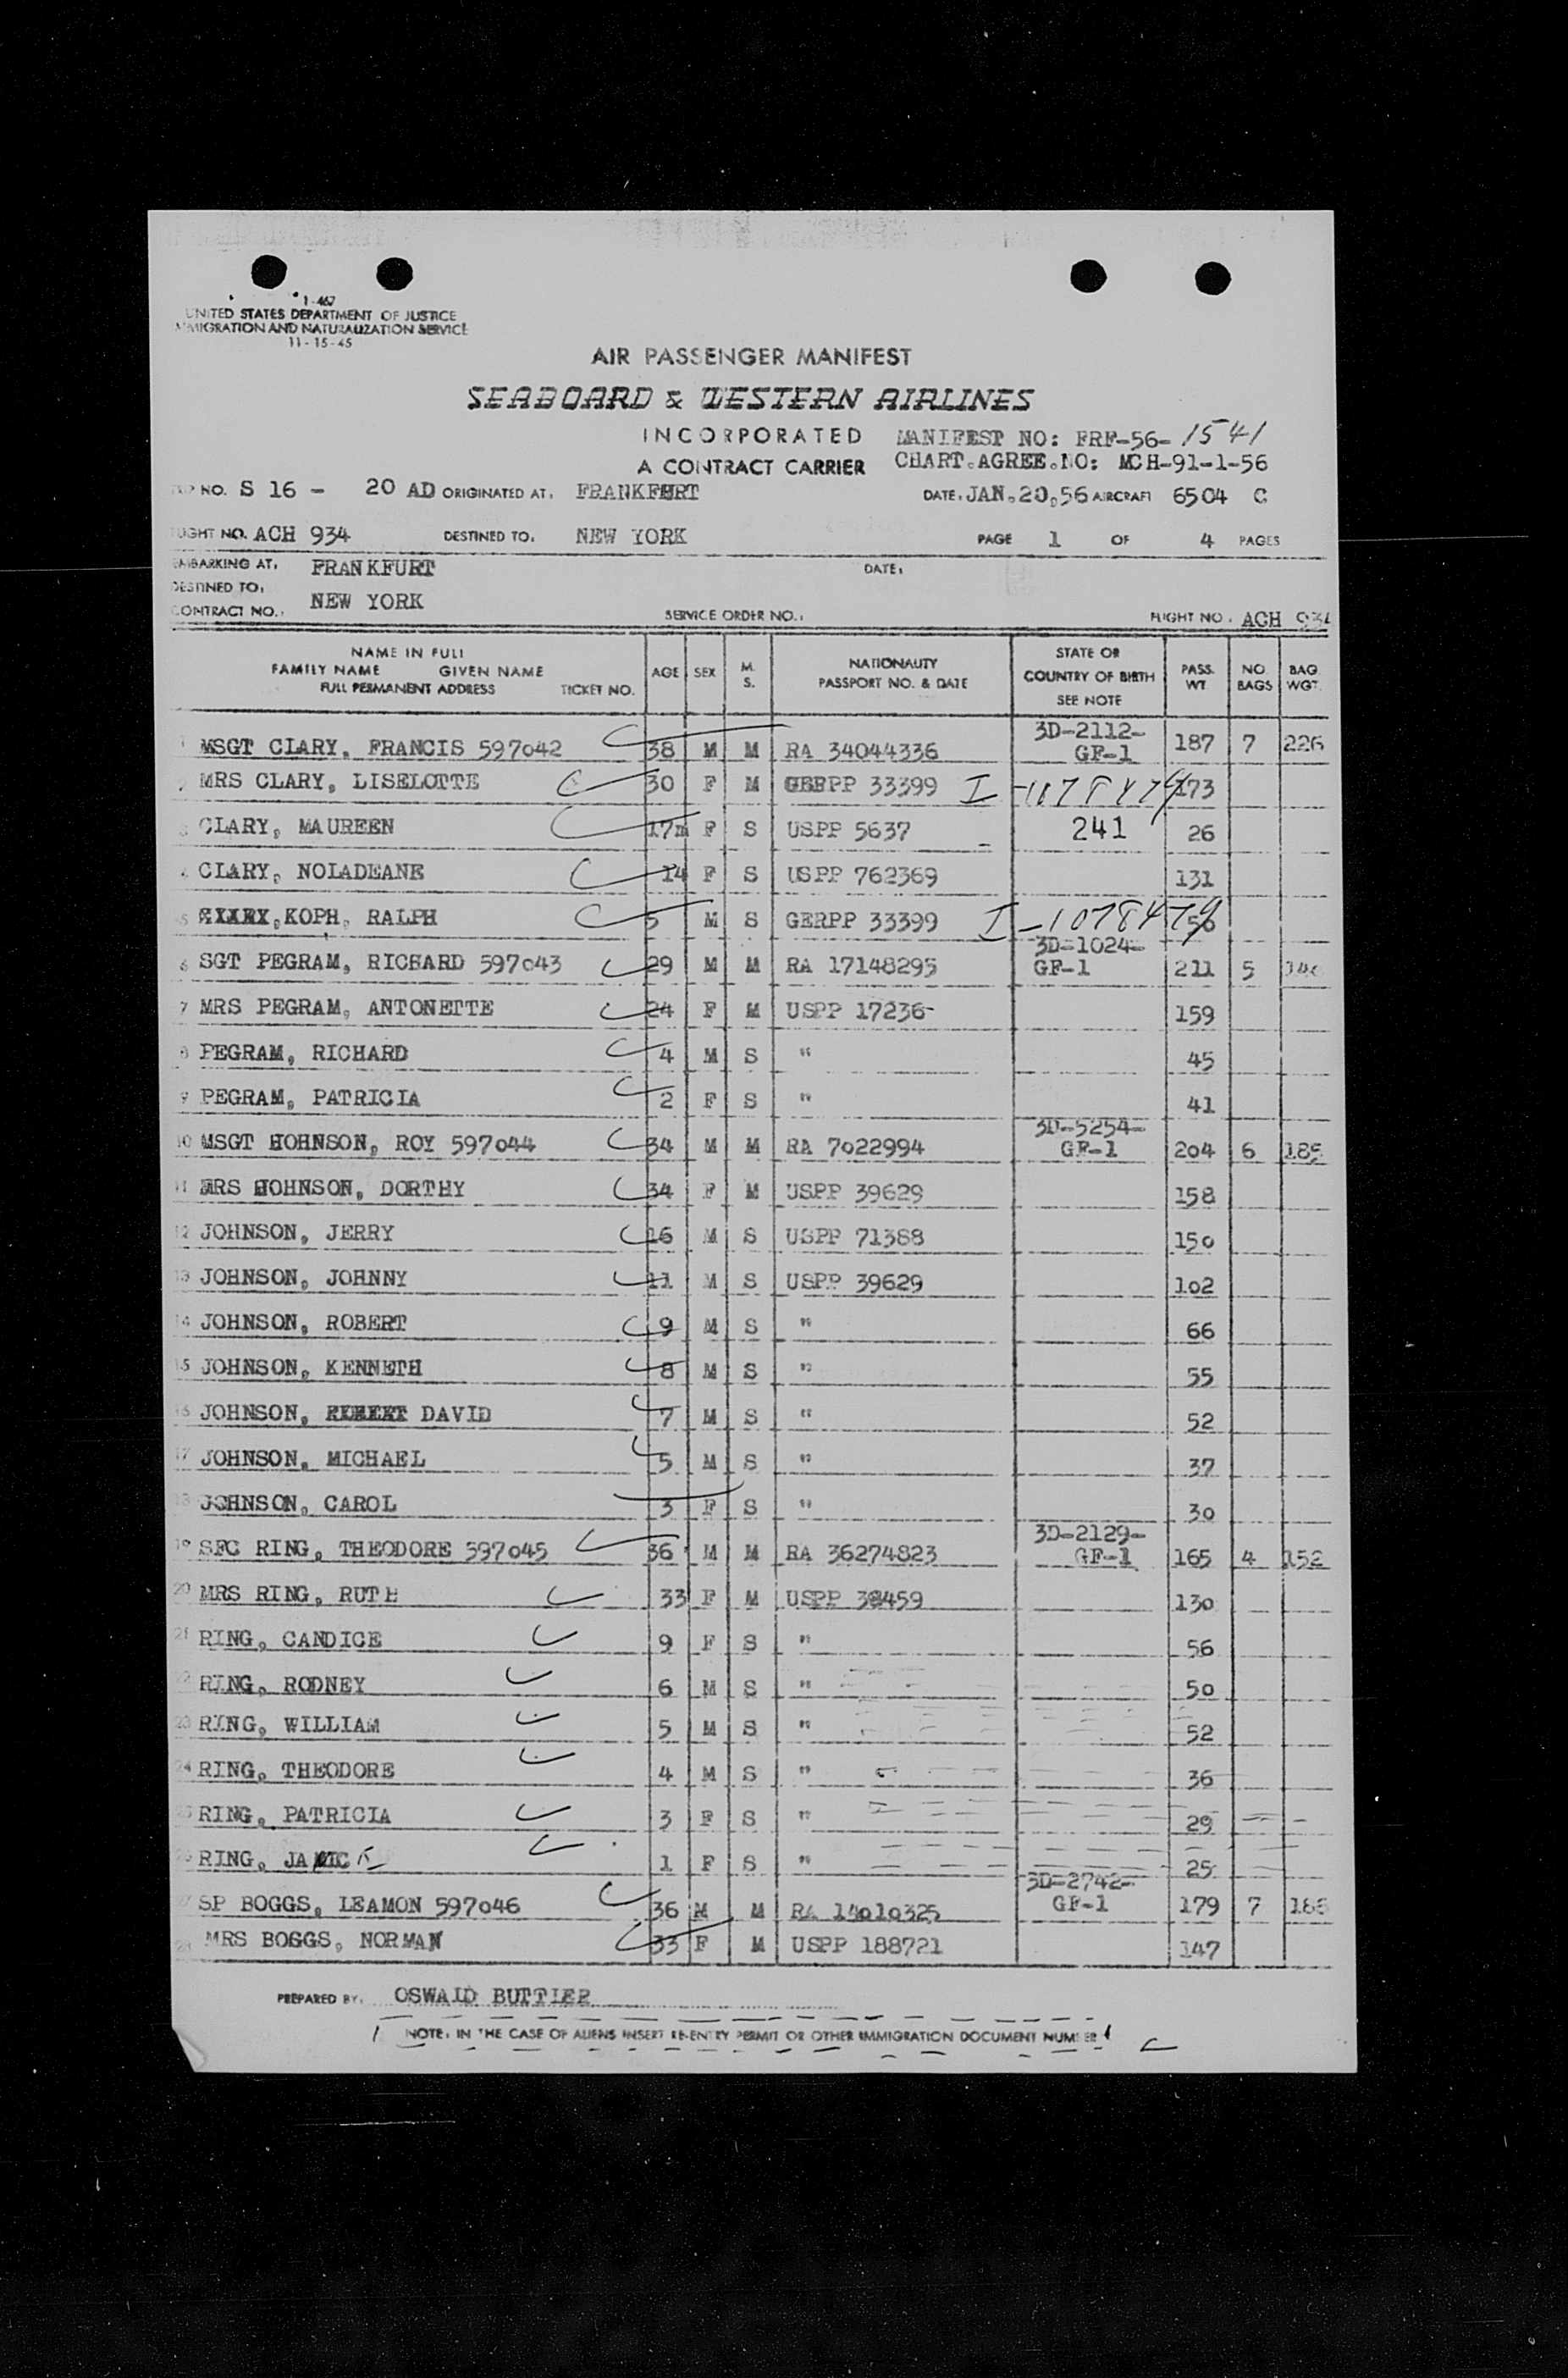 I-467
UNITED STATES DEPARTMENT OF JUSTICE
IMMIGRATION AND NATURALIZATION SERVICE
11-15-45
AIR PASSENGER MANIFEST
SEABOARD & WESTERN AIRLINES
INCORPORATED MANIFEST NO: FRF-56-1541
A CONTRACT CARRIER CHART.AGREE.NO: MCH-91-1-56
NO. S 16 - 20 AD ORIGINATED AT: FRANKFURT DATE: JAN.20.56 AIRCRAFT 6504 C
FLIGHT NO. ACH 934 DESTINED TO: NEW YORK PAGE 1 OF 4 PAGES
EMBARKING AT: FRANKFURT DATE:
DESTINED TO: NEW YORK
CONTRACT NO.: SERVICE ORDER NO.: FLIGHT NO. ACH 934
NAME IN FULL
FAMILY NAME GIVEN NAME
FULL PERMANENT ADDRESS TICKET NO. AGE SEX M. S. NATIONALITY PASSPORT NO. & DATE STATE OR COUNTRY OF BIRTH SEE NOTE PASS. WT NO. BAGS BAG WGT.
1 MSGT CLARY, FRANCIS 597042 38 M M RA 34044336 3D-2112-GF-1 187 7 226
2 MRS CLARY, LISELOTTE 30 F M GERPP 33399 I-1078479 173
3 CLARY, MAUREEN 17m F S USPP 5637 241 26
4 CLARY, NOLADEANE 14 F S USPP 762369 131
5 KOPH, RALPH 5 M S GERPP 33399 I-1078479
6 SGT PEGRAM, RICHARD 597043 29 M M RA 17148295 3D-1024-GF-1 211 5
7 MRS PEGRAM, ANTONETTE 24 F M USPP 17236- 159
8 PEGRAM, RICHARD 4 M S " 45
9 PEGRAM, PATRICIA 2 F S " 41
10 MSGT HOHNSON, ROY 597044 34 M M RA 7022994 3D-5254-GF-1 204 6 185
11 MRS HOHNSON, DORTHY 34 F M USPP 39629 158
12 JOHNSON, JERRY 16 M S USPP 71388 150
13 JOHNSON, JOHNNY 11 M S USPP 39629 102
14 JOHNSON, ROBERT 9 M S " 66
15 JOHNSON, KENNETH 8 M S " 55
16 JOHNSON, DAVID 7 M S " 52
17 JOHNSON, MICHAEL 5 M S " 37
18 JOHNSON, CAROL 3 F S " 30
19 SFC RING, THEODORE 597045 36 M M RA 36274823 3D-2129-GF-1 165 4 152
20 MRS RING, RUTH 33 F M USPP 38459 130
21 RING, CANDICE 9 F S " 56
22 RING, RODNEY 6 M S " 50
23 RING, WILLIAM 5 M S " 52
24 RING, THEODORE 4 M S " 36
25 RING, PATRICIA 3 F S " 29
26 RING, JANICE 1 F S " 25
27 SP BOGGS, LEAMON 597046 36 M M RA 14010325 3D-2742-GF-1 179 7 186
28 MRS BOGGS, NORMAN 33 F M USPP 188721 147
PREPARED BY: OSWALD BUTTLER
NOTE: IN THE CASE OF ALIENS INSERT RE-ENTRY PERMIT OR OTHER IMMIGRATION DOCUMENT NUMBER